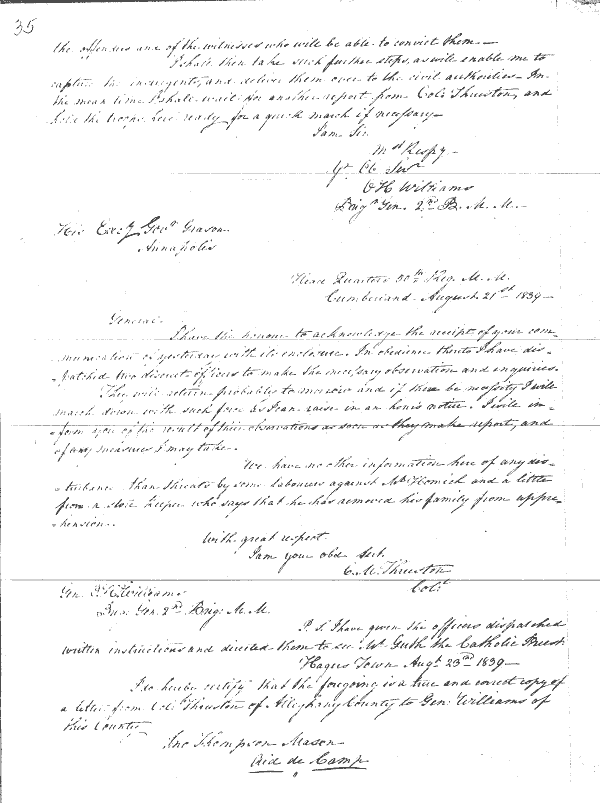 35
the offenders and of the witnesses who will be able to convict them.—
I shall then take such further steps, as will enable me to
capture the insurgents, and deliver them over to the civil authorities. In
the mean time I shall wait for another report from Col: Thruston, and
hold the troops here ready for a quick march if necessary—
I am Sir
Mst Respy—
Yr Ob Servt
O H Williams
Brigr Genl 2nd B. M. M.—
His Excy Govr Grason
Annapolis
Head Quarters 50th Reg. M. M.
Cumberland August 21st 1839—
General
I have the honour to acknowledge the receipt of your com-
munication of yesterday with its enclosure. In obedience thereto I have dis-
patched two discreet officers to make the necessary observation and enquiries.
They will return probably to morrow and if there be necessity I will
march down with such force as I can raise in an hours notice. I will in-
form you of the result of their observations as soon as they make report, and
of any measures I may take.
We have no other information here of any dis-
turbance than threats by some labourers against Mr and a letter
from a store keeper who says that he has removed his family from appre-
hension.
With great respect
I am your obdt Sert.
C. M. Thruston
Colt
Gen. O. H. Williams
Gen 2nd Brig. M. M.
P. S. I have given the officers dispatched
written instructions and directed them to see Mr Guth the Catholic Priest
Hagers Town Augt 23rd 1839—
I do hereby certify that the foregoing is a true and correct copy of
a letter from Col: Thruston of Alleghany County to Gen. Williams of
this County
Jno Thompson Mason
Aid de Camp